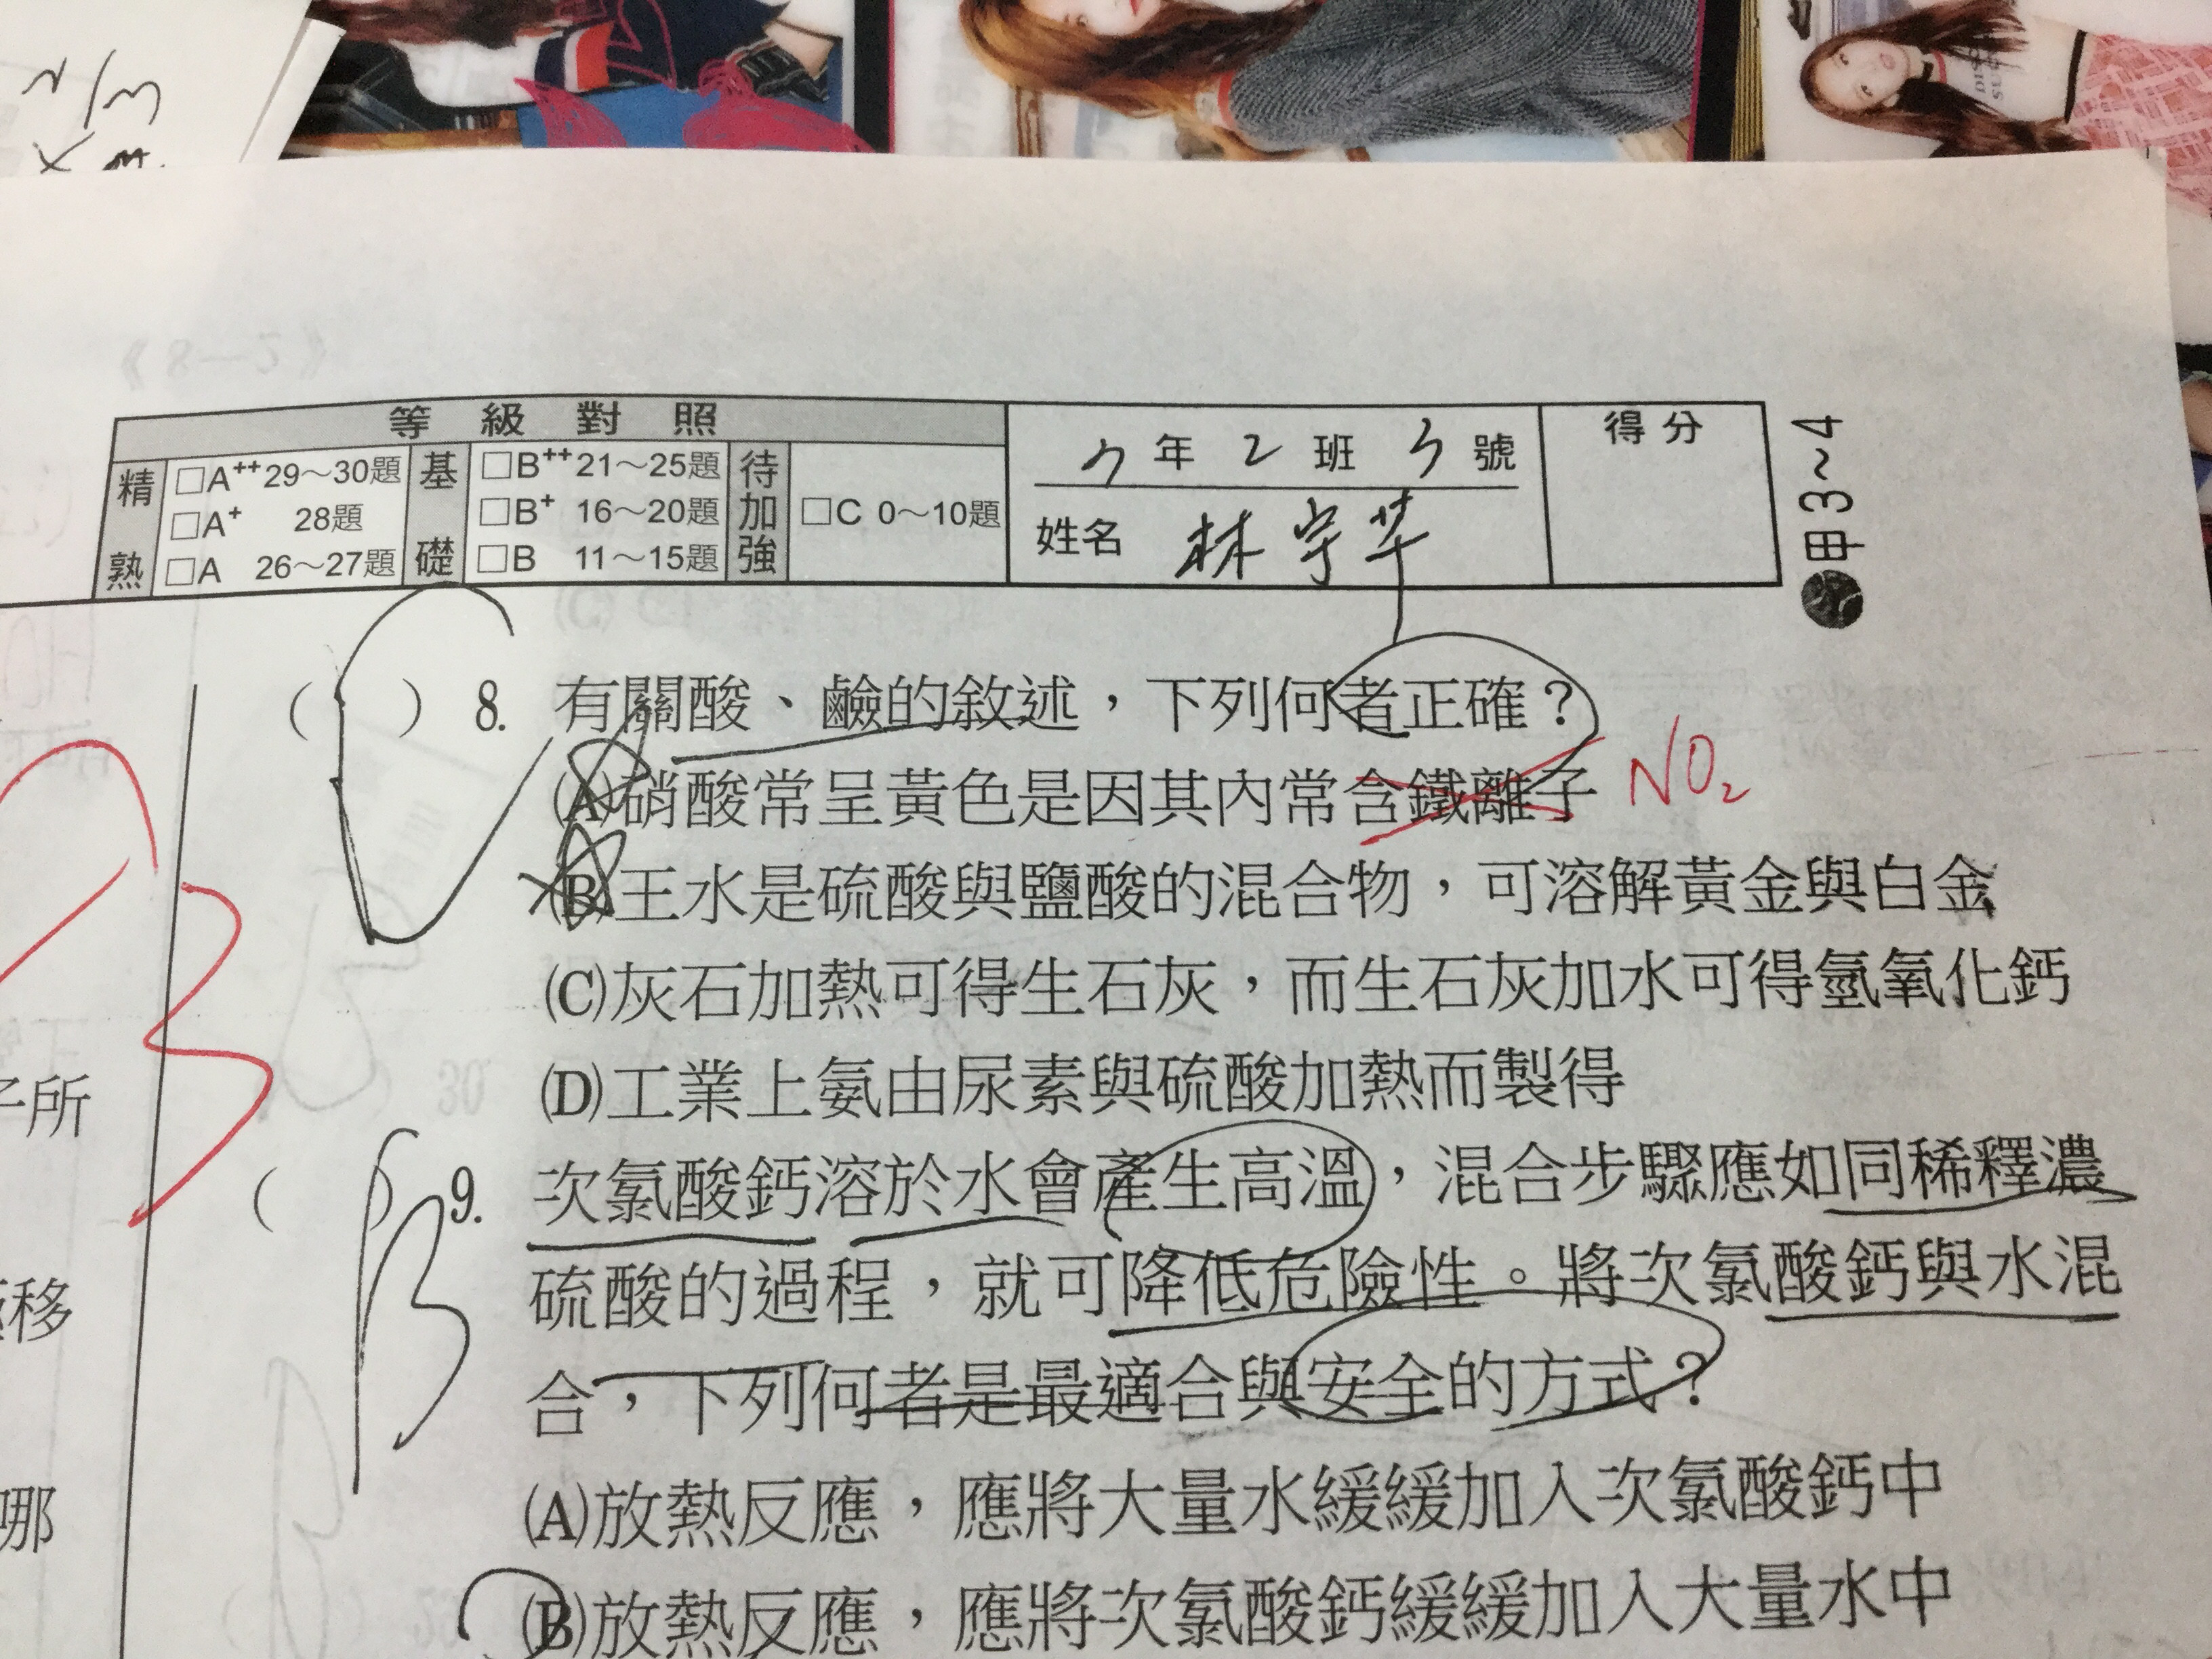 2/3
等級對照
精熟
□A++ 29～30題
□A+ 28題
□A 26～27題
基礎
□B++ 21～25題
□B+ 16～20題
□B 11～15題
待加強
□C 0～10題
年 2 班 号號
姓名 林宇芊
得分
申3~4
( ) 8. 有關酸、鹼的敘述，下列何者正確？
(A)硝酸常呈黃色是因其內常含鐵離子 NO₂
(B)王水是硫酸與鹽酸的混合物，可溶解黃金與白金
(C)灰石加熱可得生石灰，而生石灰加水可得氫氧化鈣
(D)工業上氨由尿素與硫酸加熱而製得
( B ) 9. 次氯酸鈣溶於水會產生高溫，混合步驟應如同稀釋濃
硫酸的過程，就可降低危險性。將次氯酸鈣與水混
合，下列何者是最適合與安全的方式？
(A)放熱反應，應將大量水緩緩加入次氯酸鈣中
(B)放熱反應，應將次氯酸鈣緩緩加入大量水中
子所
移
哪